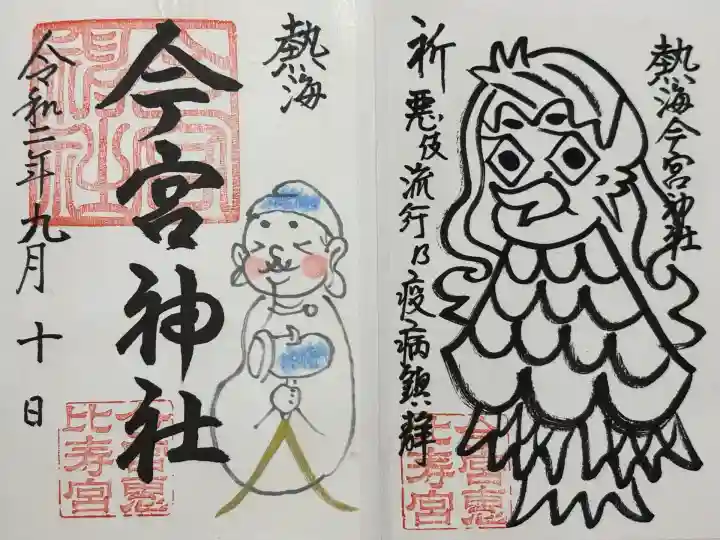 熱海
今宮神社
令和二年九月十日
今宮恵
比寿宮
熱海今宮神社
祈悪疫流行乃疫病鎮静
今宮恵
比寿宮